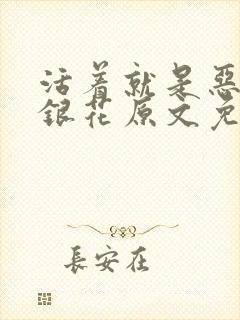 活着就是惡
銀花原文免
長安在